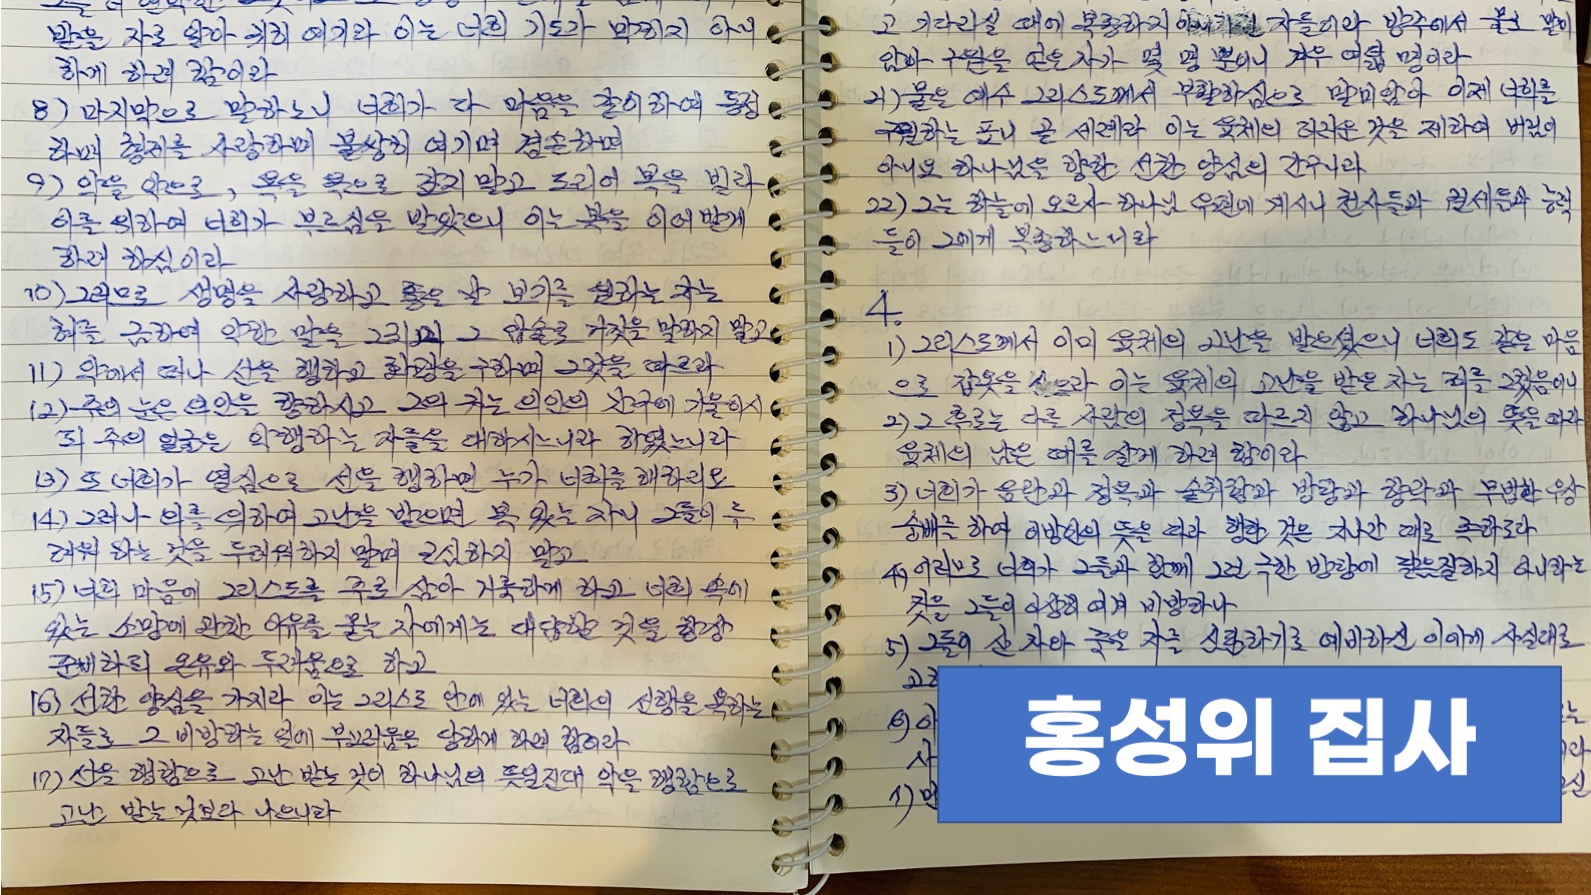 받을 자로 알아 귀히 여기라 이는 너희 기도가 막히지 아니
하게 하려 함이라
8) 마지막으로 말하노니 너희가 다 마음을 같이하여 동정
하며 형제를 사랑하며 불쌍히 여기며 겸손하며
9) 악을 악으로, 욕을 욕으로 갚지 말고 도리어 복을 빌라
이를 위하여 너희가 부르심을 받았으니 이는 복을 이어받게
하려 하심이라
10) 그러므로 생명을 사랑하고 좋은 날 보기를 원하는 자는
혀를 금하여 악한 말을 그치며 그 입술로 거짓을 말하지 말고
11) 악에서 떠나 선을 행하고 화평을 구하며 그것을 따르라
12) 주의 눈은 의인을 향하시고 그의 귀는 의인의 간구에 기울이시
되 주의 얼굴은 악행하는 자들을 대하시느니라 하였느니라
13) 또 너희가 열심으로 선을 행하면 누가 너희를 해하리요
14) 그러나 의를 위하여 고난을 받으면 복 있는 자니 그들이 두
려워 하는 것을 두려워하지 말며 근심하지 말고
15) 너희 마음에 그리스도를 주로 삼아 거룩하게 하고 너희 속에
있는 소망에 관한 이유를 묻는 자에게는 대답할 것을 항상
준비하되 온유와 두려움으로 하고
16) 선한 양심을 가지라 이는 그리스도 안에 있는 너희의 선행을 욕하는
자들로 그 비방하는 일에 부끄러움을 당하게 하려 함이라
17) 선을 행함으로 고난 받는 것이 하나님의 뜻일진대 악을 행함으로
고난 받는 것보다 나으니라
고 기다리실 때에 복종하지 자들이라 방주에서 물로 말미
암아 구원을 얻은 자가 몇 명 뿐이니 겨우 여덟 명이라
21) 물은 예수 그리스도께서 부활하심으로 말미암아 이제 너희를
구원하는 표니 곧 세례라 이는 육체의 더러운 것을 제하여 버림이
아니요 하나님을 향한 선한 양심의 간구니라
22) 그는 하늘에 오르사 하나님 우편에 계시니 천사들과 권세들과 능력
들이 그에게 복종하느니라
4.
1) 그리스도께서 이미 육체의 고난을 받으셨으니 너희도 같은 마음
으로 갑옷을 삼으라 이는 육체의 고난을 받은 자는 죄를 그쳤음이니
2) 그 후로는 다른 사람의 정욕을 따르지 않고 하나님의 뜻을 따라
육체의 남은 때를 살게 하려 함이라
3) 너희가 음란과 정욕과 술취함과 방탕과 향락과 무법한 우상
숭배를 하여 이방인의 뜻을 따라 행한 것은 지나간 때로 족하도다
4) 이러므로 너희가 그들과 함께 그런 극한 방탕에 달음질하지 아니하는
것을 그들이 이상히 여겨 비방하나
5) 그들이 산 자와 죽은 자를 심판하기로 예비하신 이에게 사실대로
홍성위 집사